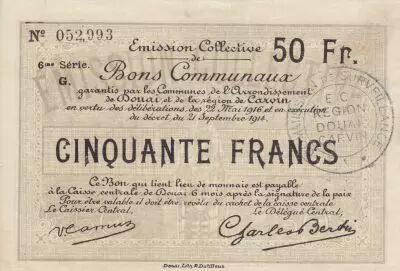 Nº 052,993
Emission Collective
de
50 Fr.
6ème Série.
G.
Bons Communaux
garantis par les Communes de l'Arrondissement
de Douai et de la région de Carvin
en vertu des délibérations des 22 Mai 1916 et en exécution
du décret du 21 Septembre 1914.
E.C.
REGION
DOUAI
CARVIN
DE SURVEILLANCE
CINQUANTE FRANCS
Ce Bon qui tient lieu de monnaie est payable
à la Caisse centrale de Douai 6 mois après la signature de la paix
Pour être valable il doit être revêtu du cachet de la caisse centrale
Le Caissier Central,
Le Délégué Central,
Charles Bertin
Douai, Lith. R. Dutilleux